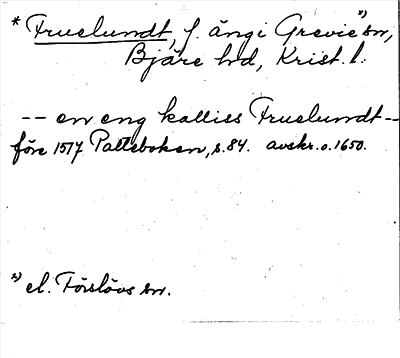 * Fruelundt, f. äng i Grevie *) sn,
Bjäre hd, Krist. l.
-- en eng kalliss Fruelundt --
före 1517 Palteboken, s. 84. avskr. o. 1650.
*) el. Förslövs sn.